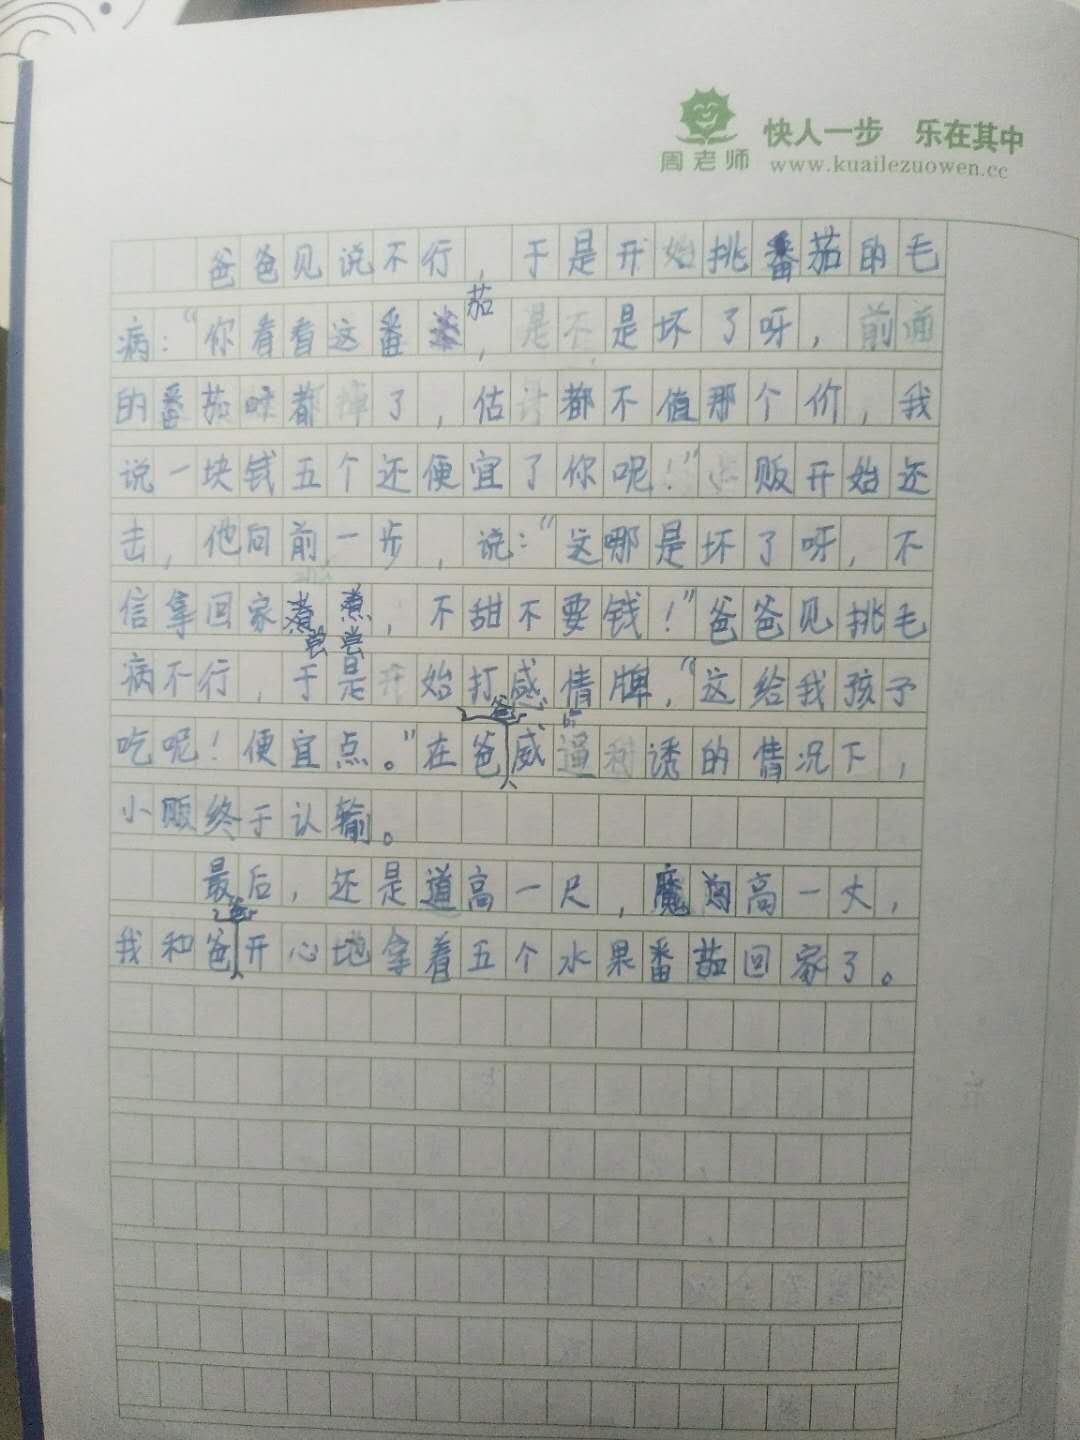 快人一步 乐在其中
周老师 www.kuailezuowen.cc
爸爸见说不行，于是开始挑番茄的毛
病：“你看看这番茄，是不是坏了呀，前面
的番茄都掉了，估计都不值那个价，我
说一块钱五个还便宜了你呢！”贩开始还
击，他向前一步，说：“这哪是坏了呀，不
信拿回家尝尝，不甜不要钱！”爸爸见挑毛
病不行，于是开始打感情牌，“这给我孩子
吃呢！便宜点。”在爸爸威逼利诱的情况下，
小贩终于认输。
最后，还是道高一尺，魔高一丈，
我和爸爸开心地拿着五个水果番茄回家了。